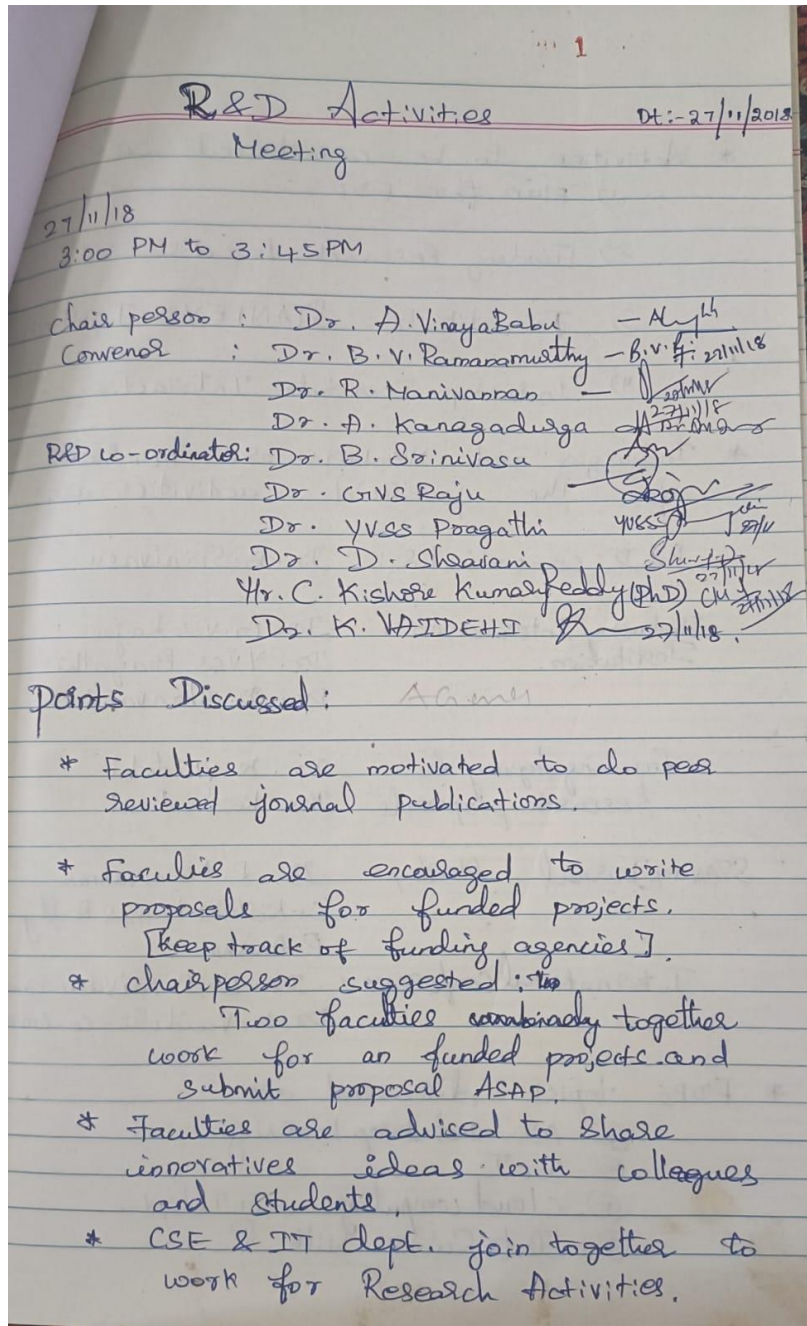 1
R&D Activities Dt:-27/11/2018
Meeting
27/11/18
3:00 PM to 3:45PM
Chair person : Dr. A. VinayaBabu -
Convenor : Dr. B. V. Ramanamurthy - B.V. 27/11/18
Dr. R. Manivannan -
Dr. A. Kanagadurga 27/11/18
R&D co-ordinator: Dr. B. Srinivasu
Dr. GVS Raju
Dr. YVSS Pragathi YVSS 27/11
Dr. D. Shravani 27/11/18
Mr. C. Kishore Kumar Reddy (PhD) 27/11/18
Dr. K. VAIDEHI 27/11/18.
Points Discussed :
* Faculties are motivated to do peer
reviewed journal publications.
* Faculies are encouraged to write
proposals for funded projects.
[keep track of funding agencies].
* chairperson suggested :
Two faculties together
work for an funded projects and
submit proposal ASAP.
* Faculties are advised to share
innovatives ideas with collegues
and students.
* CSE & IT dept. join together to
work for Research Activities.